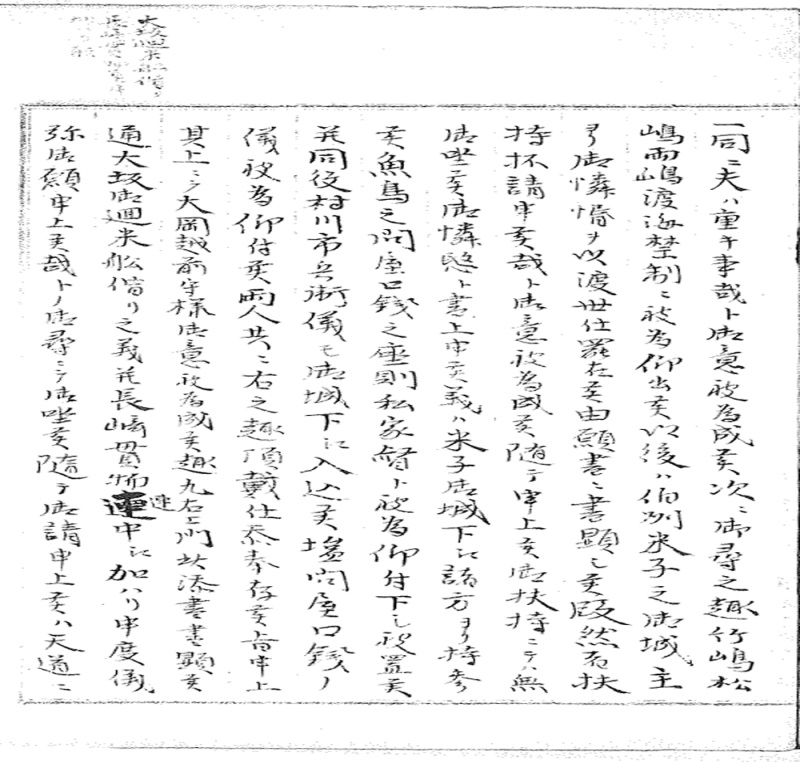 大坂廻米船借リ
一同ニ夫ハ重キ事哉ト御意被為成候次ニ御尋之趣竹嶋松
嶋両嶋渡海禁制ニ被為仰出候以後ハ伯州米子之御城主
ヨリ御憐愍ヲ以渡世仕罷在候由願書ニ書顕シ候段然者扶
持抔請申候哉ト御意被為成候随テ申上候御扶持ニテハ無
御座候御憐愍ト書上申候義ハ米子御城下江諸方ヨリ持参
候魚鳥之問屋口銭之座則私家督ト被為仰付下シ被置候
并同役村川市兵衛儀モ御城下江入込候塩問屋口銭ノ
儀被為仰付候両人共ニ右之趣頂戴仕忝奉存候旨申上
其上ニテ大岡越前守様御意被為成候趣 右 添書書顕候
通大坂御廻米船借リ之義并長崎貫物連連中江加ハリ申度儀
弥御願申上候哉トノ御尋ニテ御座候随テ御請申上候ハ天道ニ